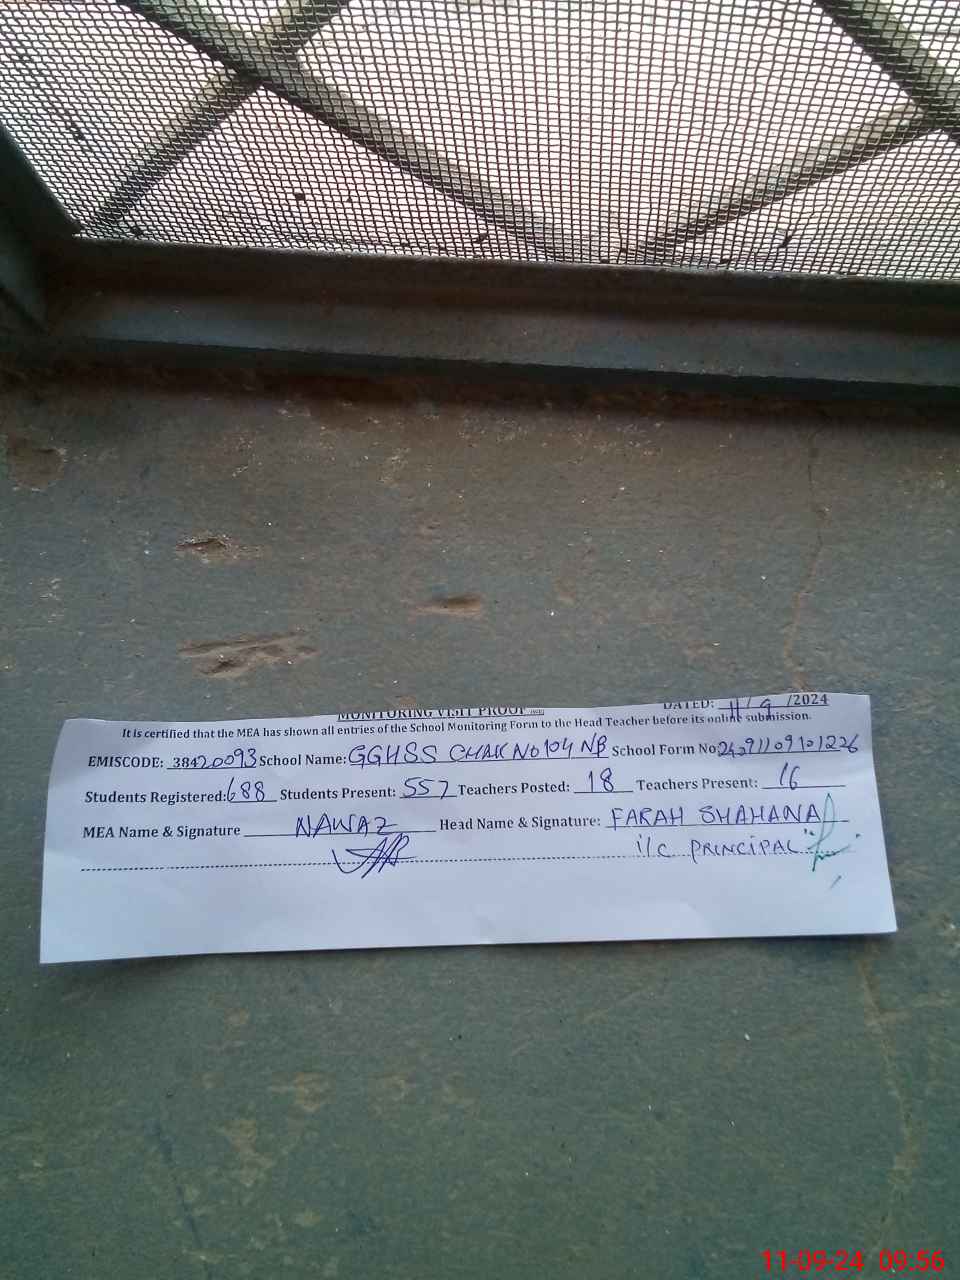 MONITORING VISIT PROOF
DATED: 11/9/2024
It is certified that the MEA has shown all entries of the School Monitoring Form to the Head Teacher before its online submission.
EMISCODE: 38420093 School Name: GGHSS CHAK No 104 NB School Form No:
Students Registered: 688 Students Present: 557 Teachers Posted: 18 Teachers Present: 16
MEA Name & Signature NAWAZ Head Name & Signature: FARAH SHAHANA
i/c PRINCIPAL
11-09-24 09:56